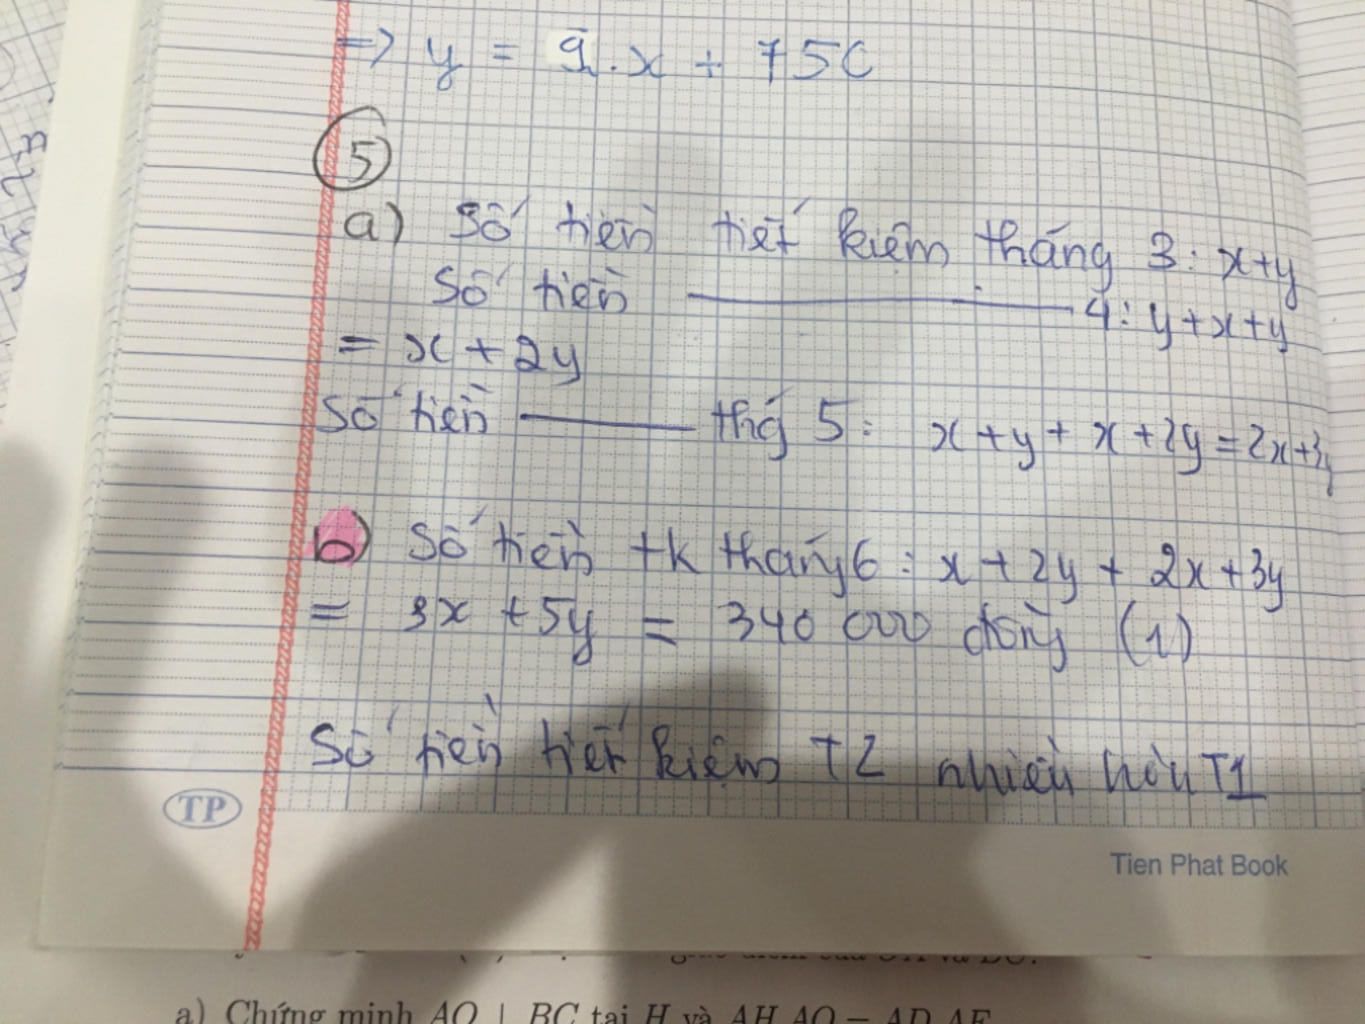 => y = 9.x + 750
5
a) Số tiền tiết kiệm tháng 3: x+y
Số tiền ———— 4: y+x+y
= x + 2y
Số tiền ——— thg 5: x+y + x+2y = 2x+3y
b) Số tiền tk tháng 6: x+2y + 2x+3y
= 3x + 5y = 340 000 đồng (1)
Số tiền tiết kiệm T2 nhiều hơn T1
TP
Tien Phat Book
a) Chứng minh AO ⊥ BC tại H và AH.AO = AD.AE